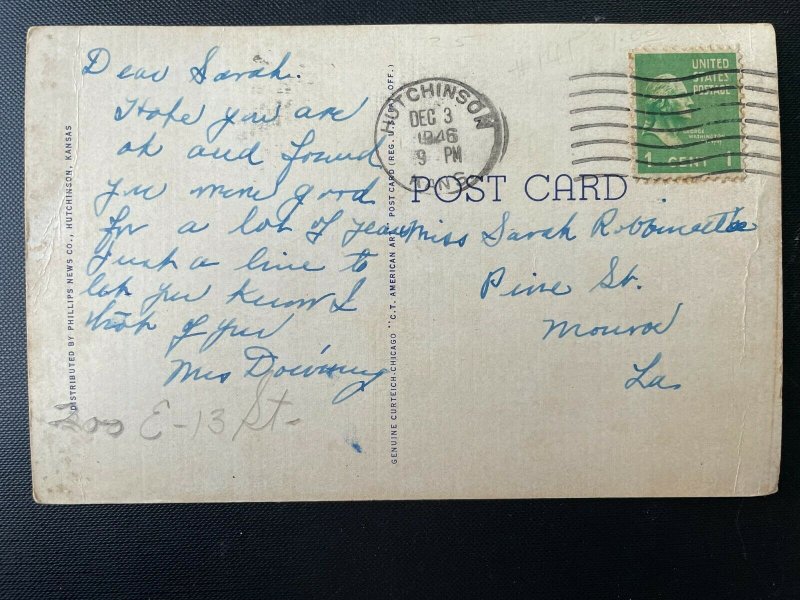 Dear Sarah.
Hope you are
ok and found
you were good
for a lot of years
Just a line to
let you know I
think of you
Mrs Downing
E-13 St-
HUTCHINSON
DEC 3
1946
9 PM
KANS.
UNITED
STATES
POSTAGE
GEORGE
WASHINGTON
1 CENT 1
POST CARD
Miss Sarah Robbinette
Pine St.
Monroe
La.
DISTRIBUTED BY PHILLIPS NEWS CO., HUTCHINSON, KANSAS
GENUINE CURTEICH-CHICAGO "C.T. AMERICAN ART" POST CARD (REG. U.S. PAT. OFF.)